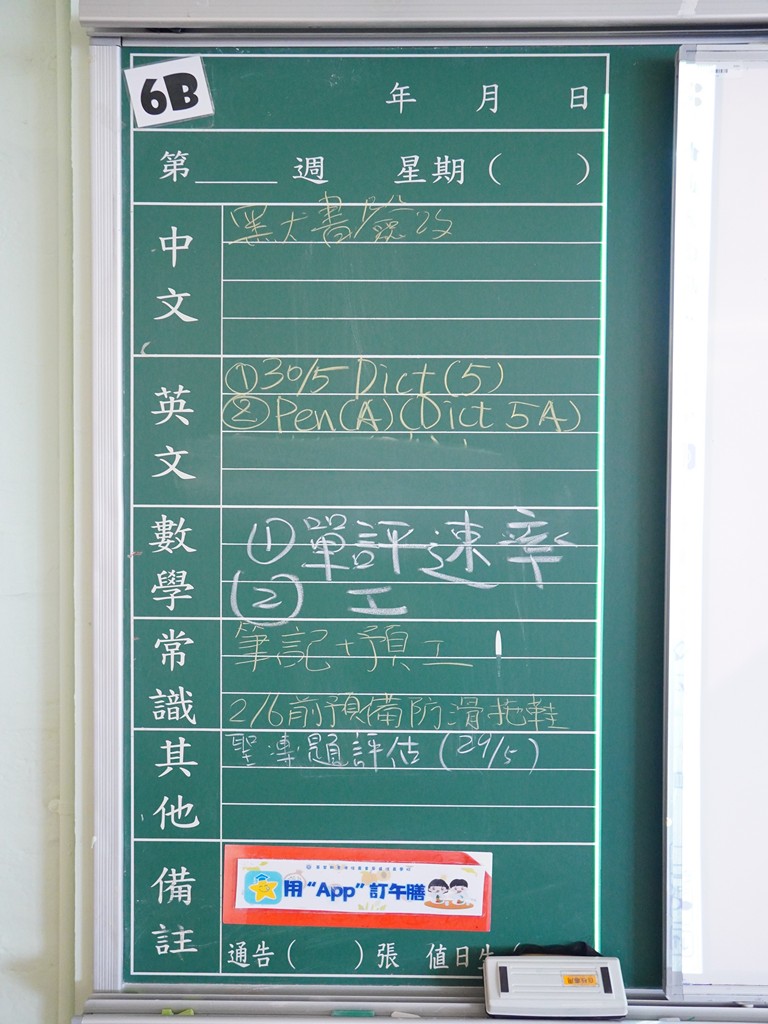 6B
年 月 日
第____週 星期( )
中文
黑犬書險改
英文
①30/5 Dict(5)
②Pen(A)(Dict 5A)
數學
①單評速率
② 工
常識
筆記+預工
2/6前預備防滑拖鞋
其他
聖 題評估(29/5)
備註
用“App”訂午膳
通告( )張 值日生(